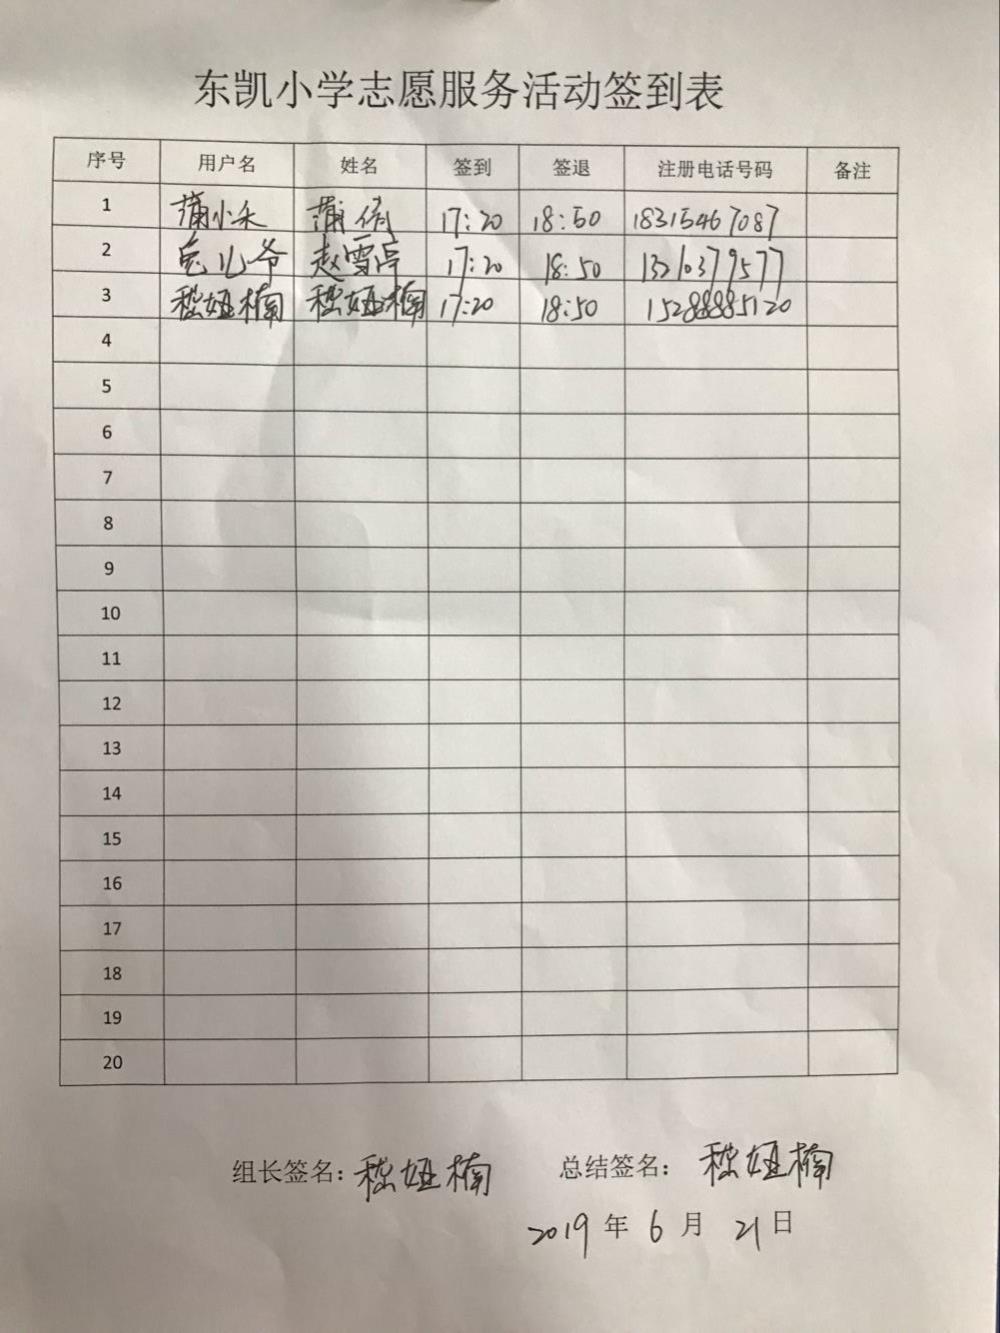 东凯小学志愿服务活动签到表
序号 用户名 姓名 签到 签退 注册电话号码 备注
1 蒲小禾 蒲倩 17:20 18:50 18315467087
2 兔儿爷 赵雪停 17:20 18:50 13210379577
3 嵇娅楠 嵇娅楠 17:20 18:50 15288885120
4
5
6
7
8
9
10
11
12
13
14
15
16
17
18
19
20
组长签名：嵇娅楠 总结签名：嵇娅楠
2019 年 6 月 21 日